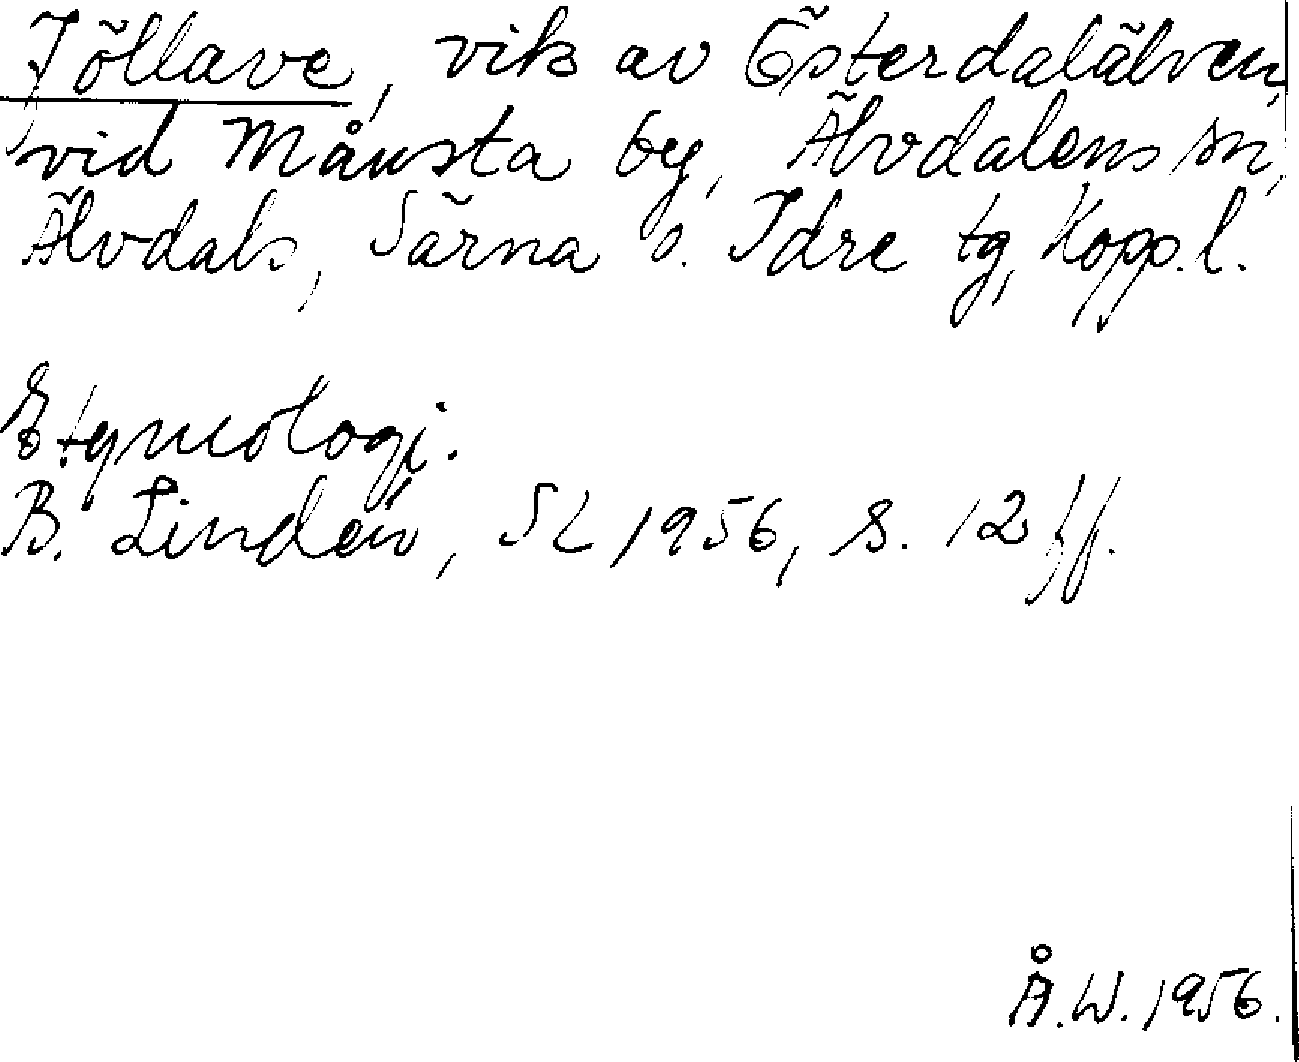 Jöllave, vik av Österdalälven,
vid Månsta by, Älvdalens sn,
Älvdals, Särna o. Idre tg, Kopp.l.
Etymologi.
B. Lindén, SL 1956, s. 12 ff.
Å.W. 1956.